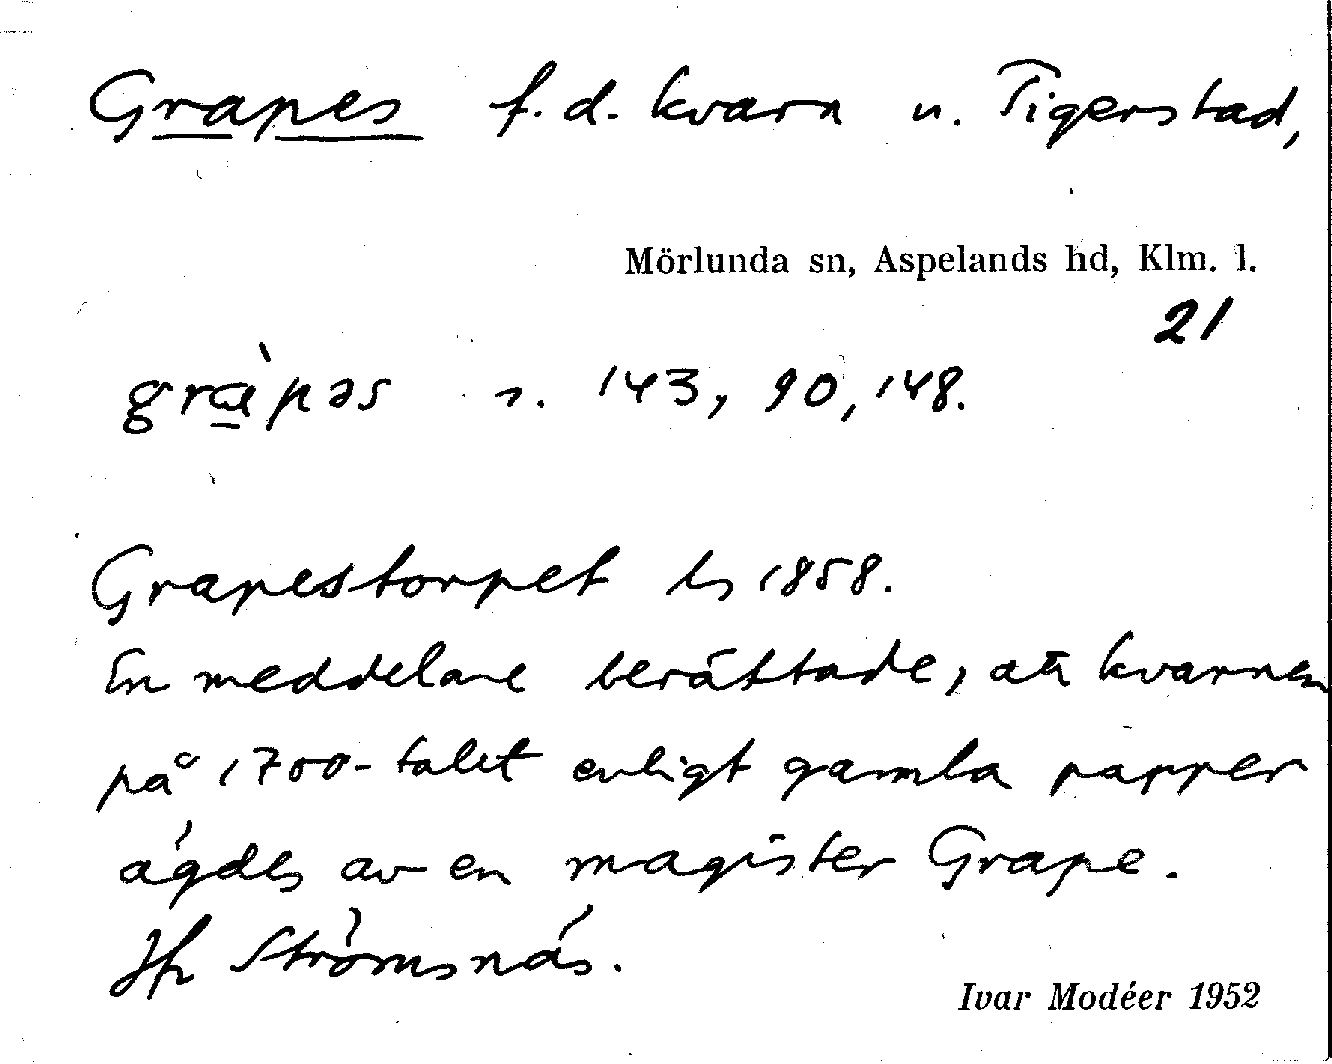 Grapes f.d. kvarn u. Tigerstad,
Mörlunda sn, Aspelands hd, Klm. l.
21
grа̀pəs s. 143, 90, 148.
Grapestorpet hs 1858.
En meddelare berättade, att kvarnen
på 1700-talet enligt gamla papper
ägdes av en magister Grape.
Jfr Strömsnäs.
Ivar Modéer 1952